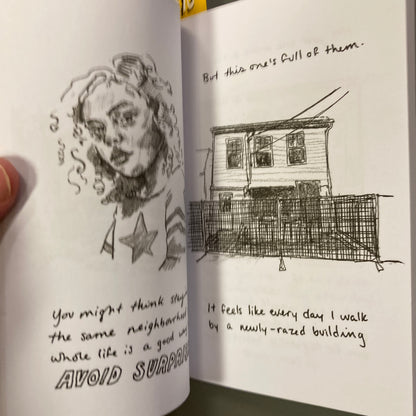 You might think stay
the same neighborhood
whole life is a good way
AVOID SURPRIS
But this one's full of them.
It feels like every day I walk
by a newly-razed building